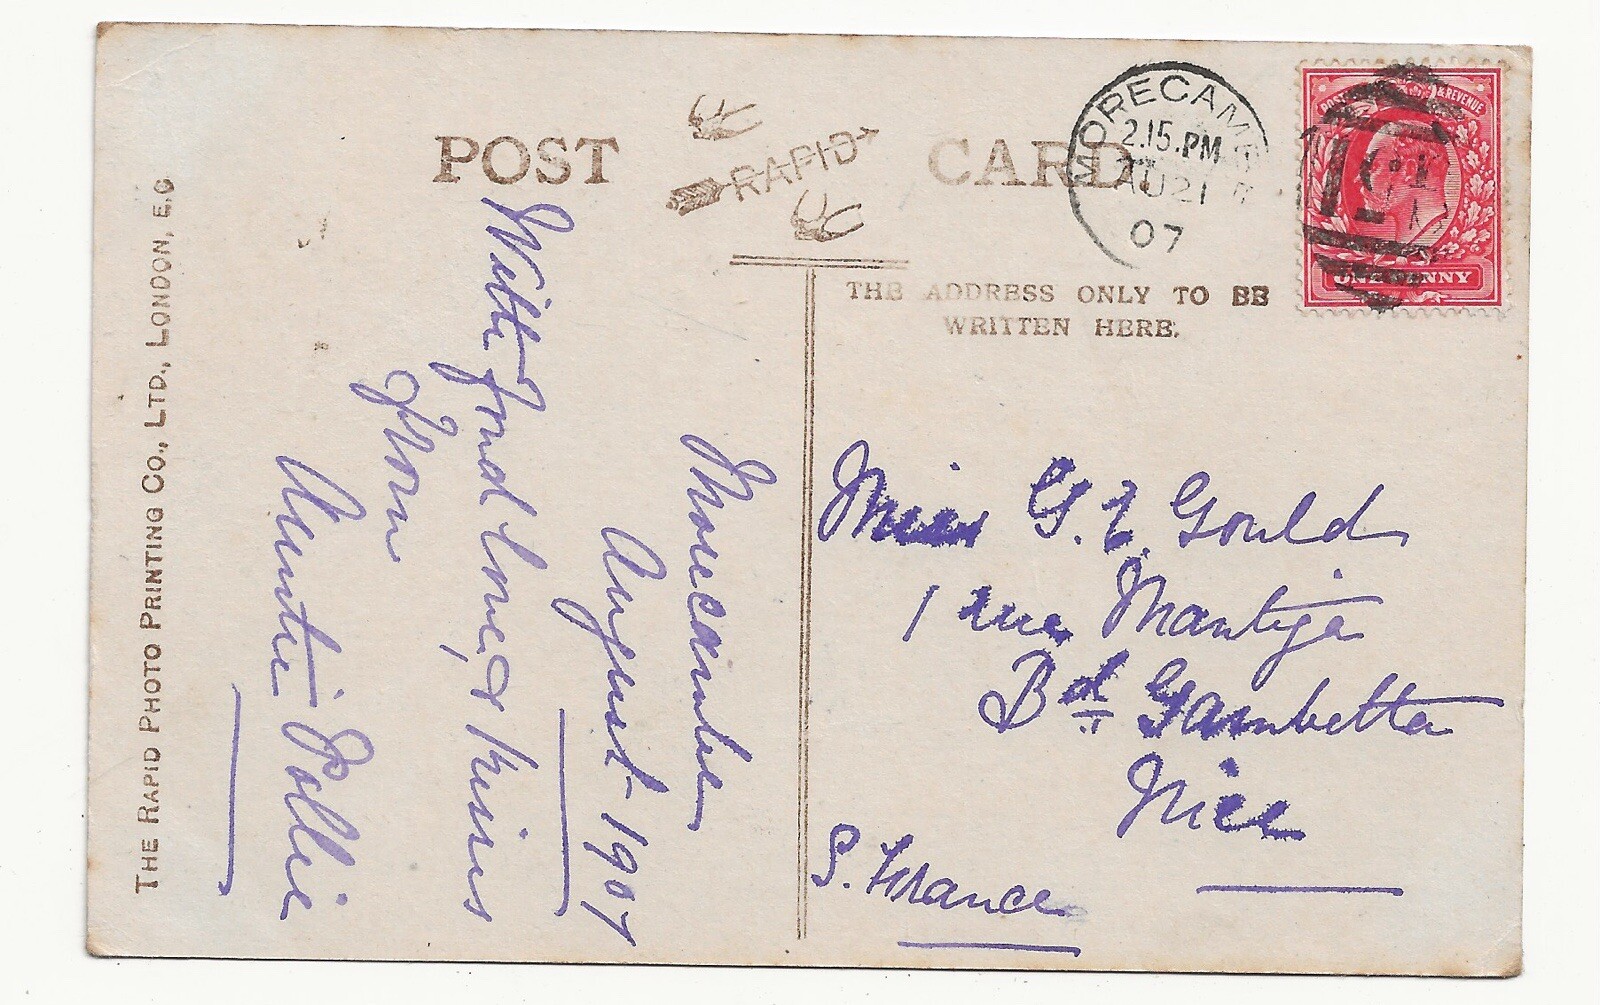 POST CARD.
RAPID
MORECAMBE
2.15.PM
AU 21
07
POSTAGE & REVENUE
ONE PENNY
THE ADDRESS ONLY TO BE
WRITTEN HERE.
Morecambe
August 1907
With fond love, & kisses
from
Auntie Pollie
Miss G. Gould
1 rue Mantega
Bd Gambetta
Nice
S. France
THE RAPID PHOTO PRINTING CO., LTD., LONDON, E.C